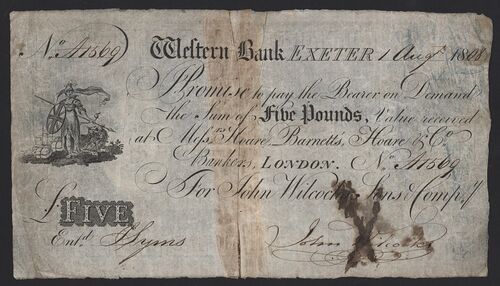 No. A1569 Western Bank EXETER 1 Augt. 1808
Promise to pay the Bearer on Demand
the Sum of Five Pounds, Value received
at Messrs. Hoare Barnetts, Hoare & Co.
Bankers, LONDON. No. A1569
For John Wilcocks, Sons & Compy.
£ FIVE
Entd. J Syms John Wilcocks